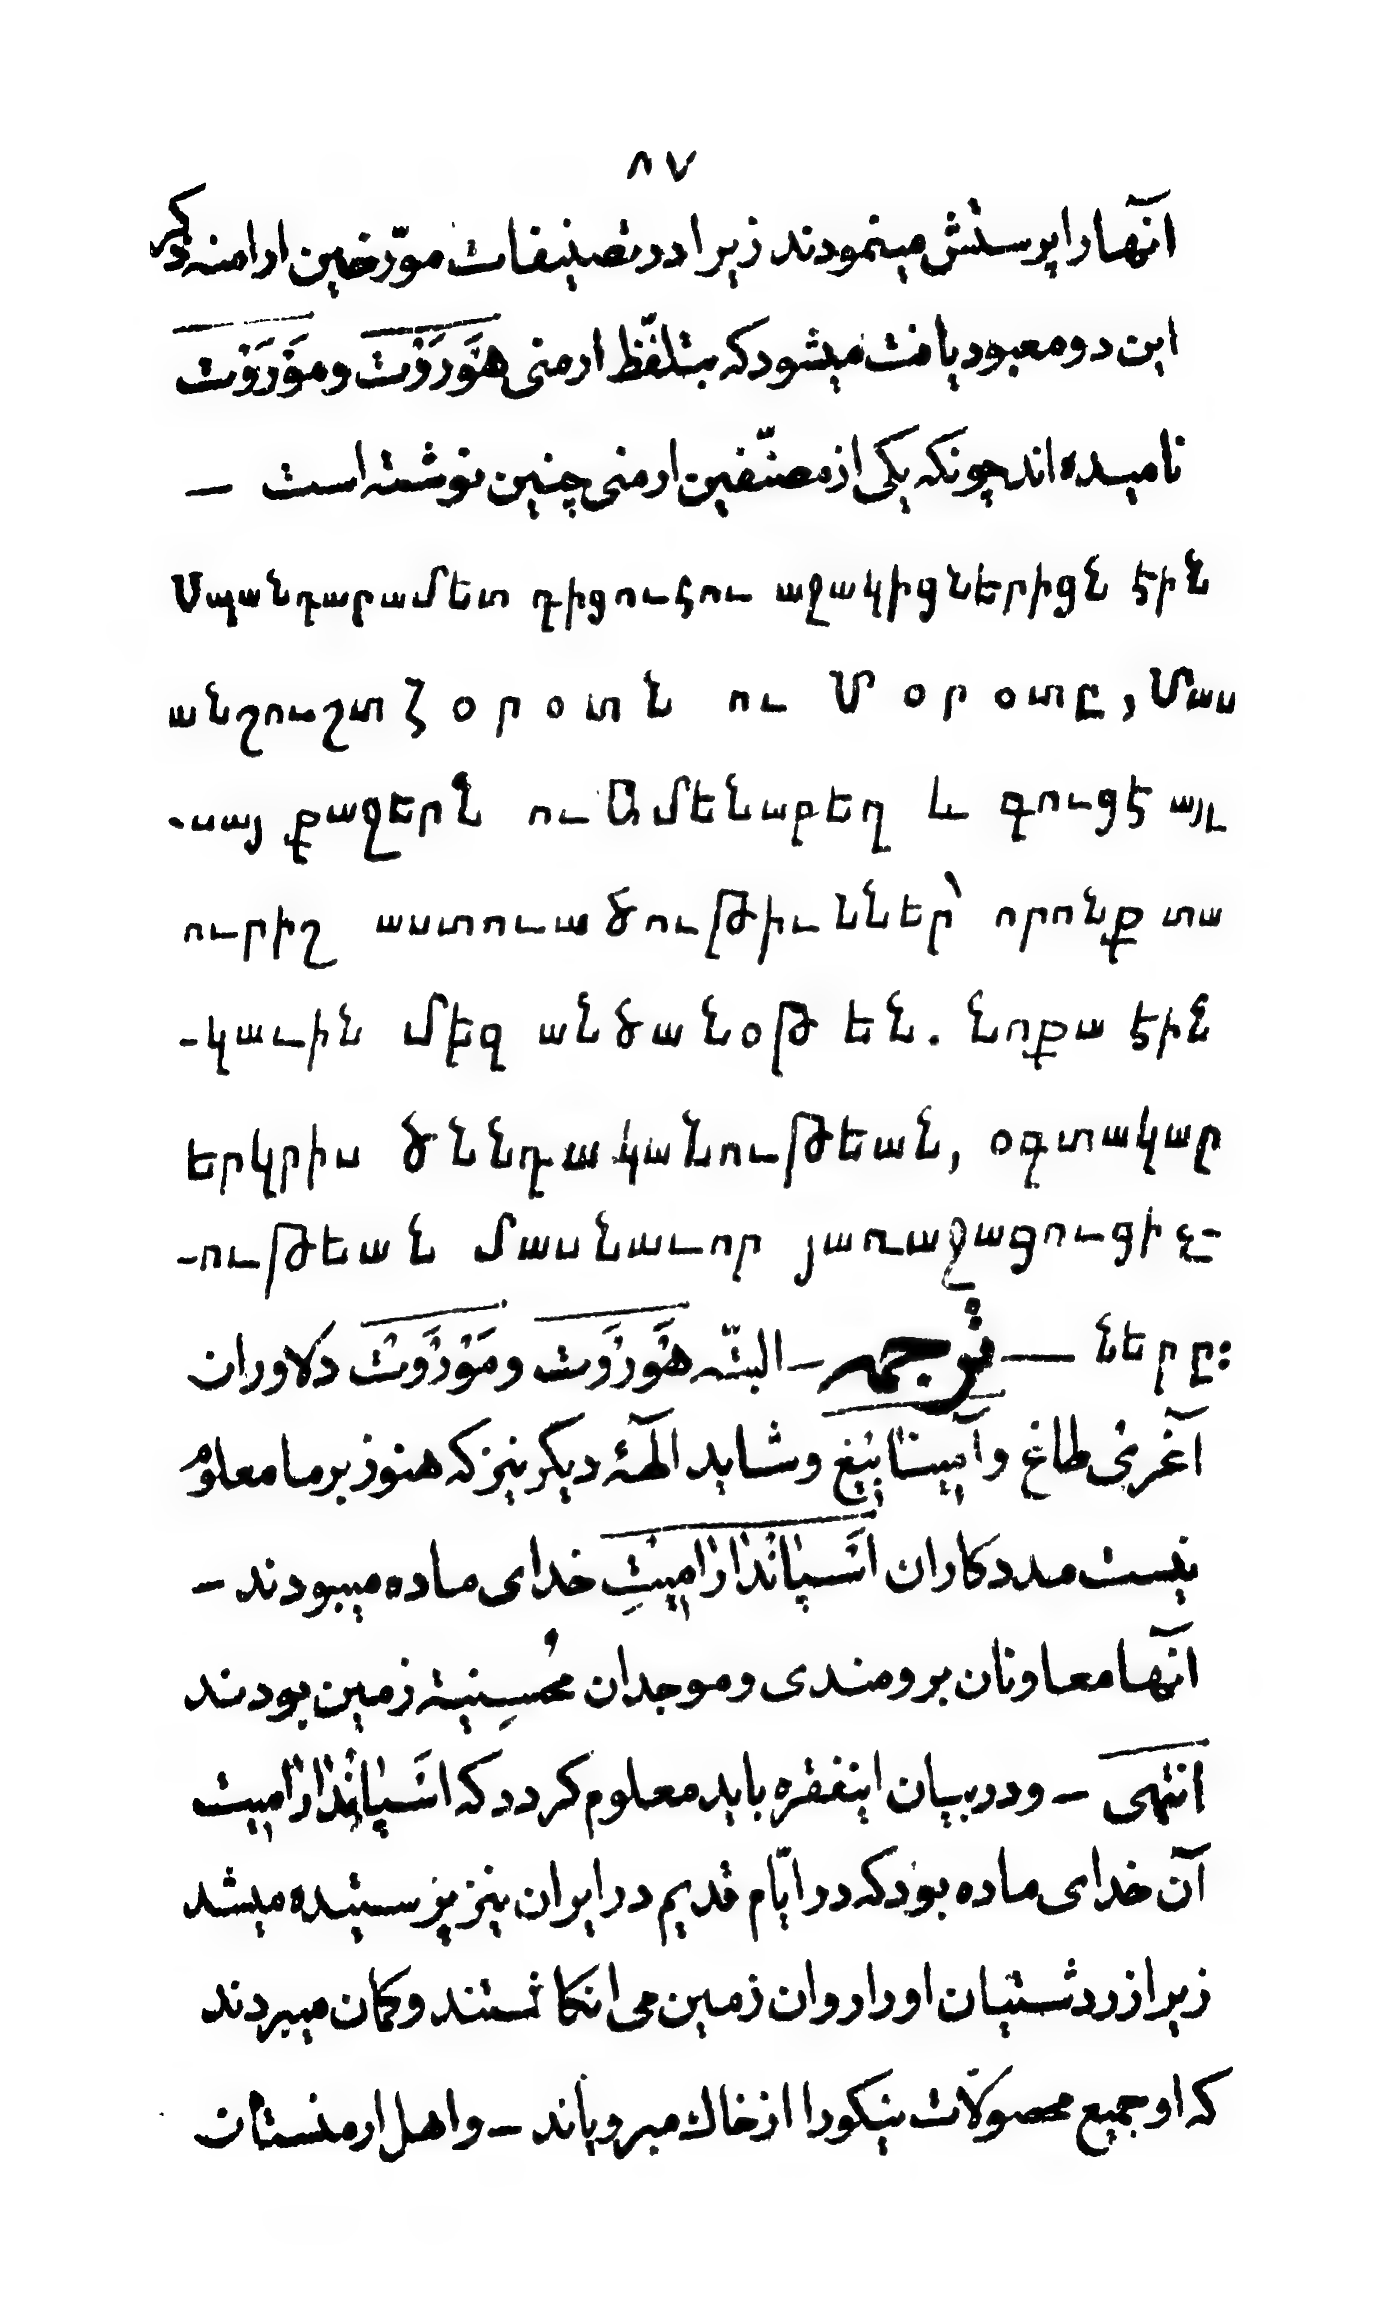 ٨٧
آنها را پرستش مینمودند زیرا در تصنیفات مورّخین ارامنه ذکر
این دو معبود یافت میشود که بتلفّظ ارمنی هَوَرَوَْت و مَوَْرَوَْت
نامیده اند چونکه یکی از مصنّفین ارمنی چنین نوشته است —
Սպանդարամետ դիցուհու աջակիցներիցն էին
անշուշտ Հօրօտն ու Մօրօտը, Մաս
-սայ քաջերն ու Ամենաբեղ և գուցէ այլ
ուրիշ աստուածութիւններ՝ որոնք տա
-կաւին մէզ անծանօթ են. նոքա էին
երկրիս ծննդականութեան, օգտակար
-ութեան մասնաւոր յառաջացուցիչ-
ները։ — ترجمه — البتّه هَوَرُوَت و مَوَْرُوَت دلاوران
آغری طاغ و آمیناپیغ و شاید الٓههٔ دیگر نیز که هنوز بر ما معلوم
نیست مددکاران اسَپانْدارامیتِ خدای ماده میبودند —
آنها معاونان برومندی و موجدان مُحسِنیهٔ زمین بودند
انتهی — و در بیان اینفقره باید معلوم گردد که اسَپانْدارامیت
آن خدای ماده بود که در ایّام قدیم در ایران نیز پرستیده میشد
زیرا زردشتیان او را روان زمین می انگاشتند و گمان میبردند
که او جمیع محصولات نیکو را از خاك میرویاند — و اهل ارمنستان